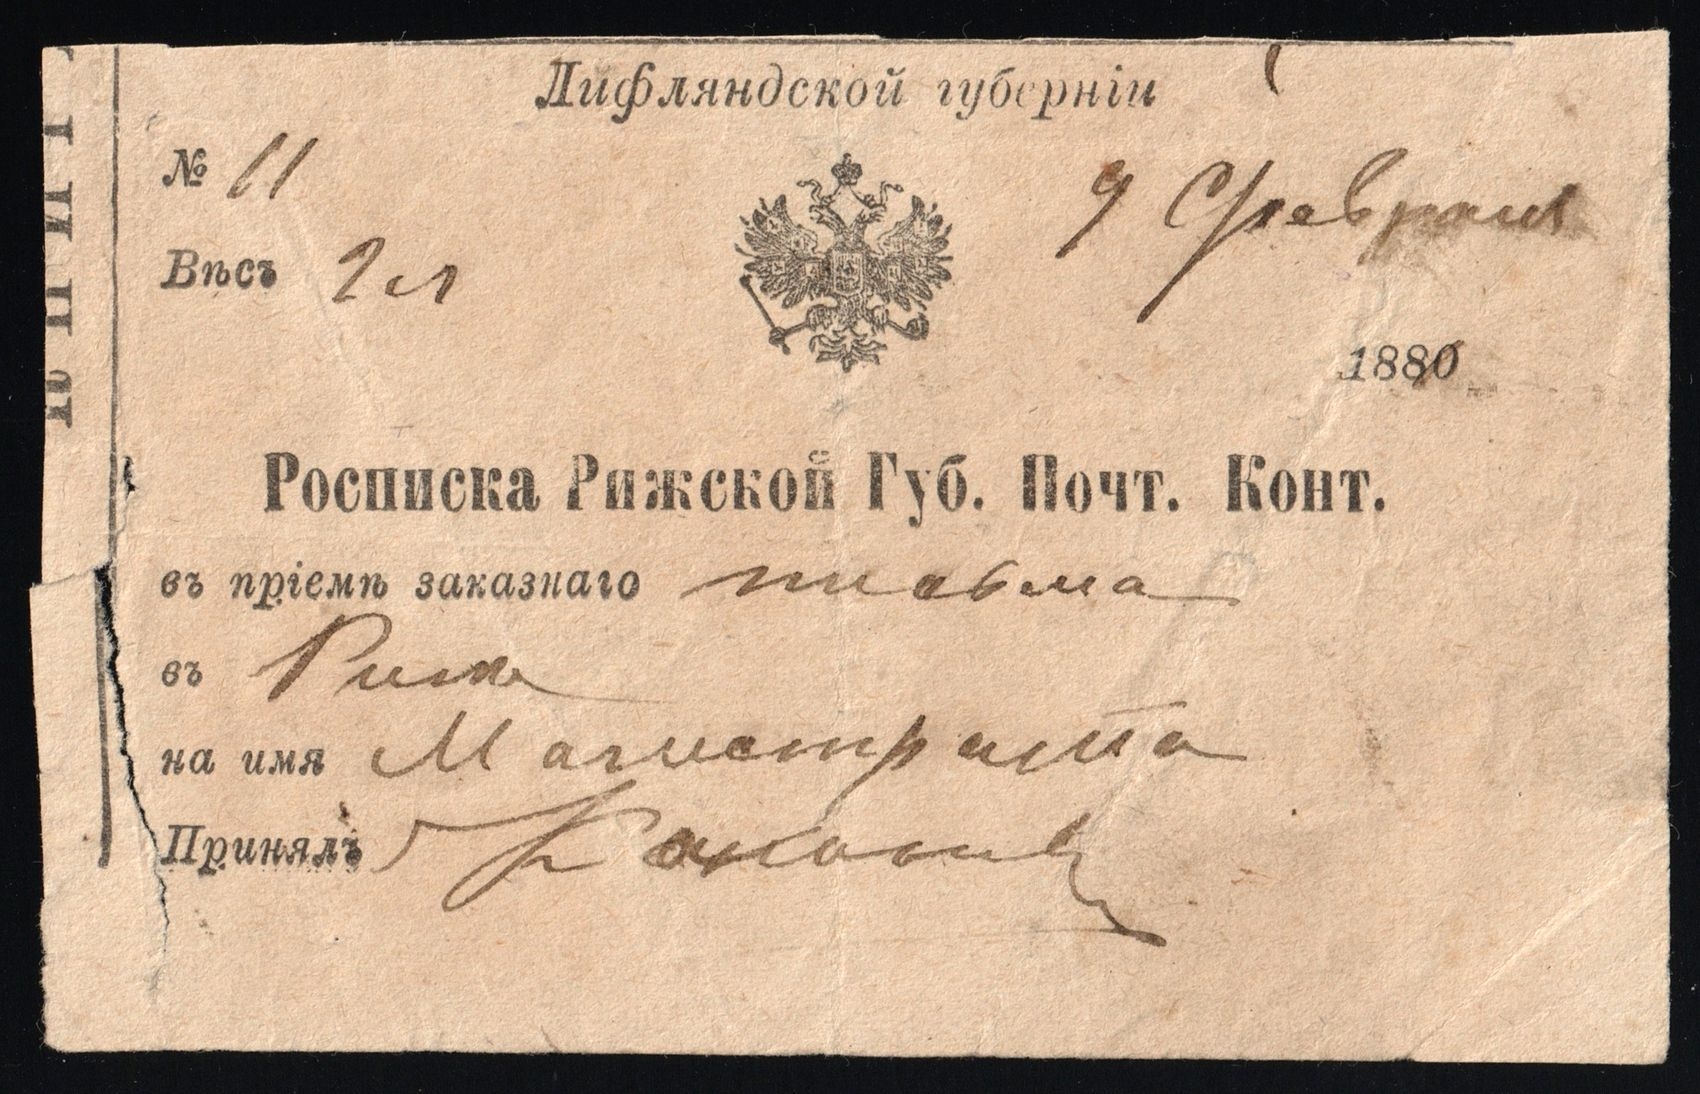 Лифляндской губерніи
№ 11
9 Февраля
Вѣсъ 2 л
1880
Росписка Рижской Губ. Почт. Конт.
въ пріемѣ заказнаго письма
въ Риге
на имя Магистрата
Принялъ